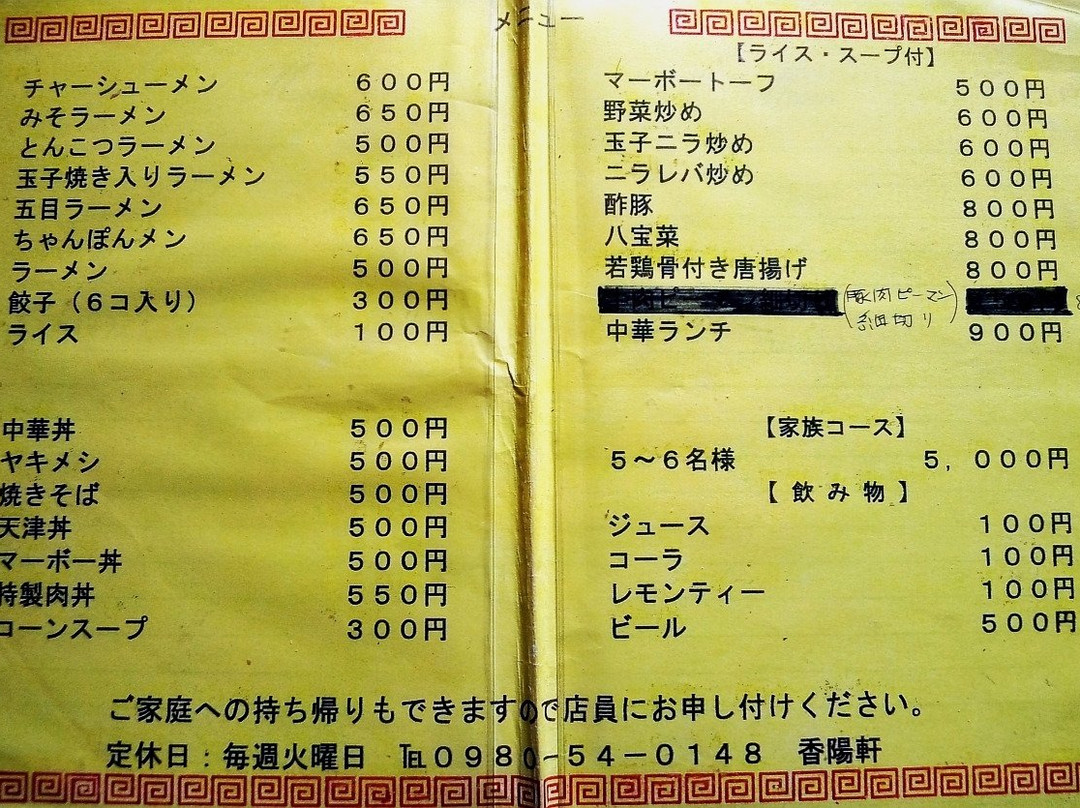 メニュー
チャーシューメン 600円
みそラーメン 650円
とんこつラーメン 500円
玉子焼き入りラーメン 550円
五目ラーメン 650円
ちゃんぽんメン 650円
ラーメン 500円
餃子(6コ入り) 300円
ライス 100円
中華丼 500円
ヤキメシ 500円
焼きそば 500円
天津丼 500円
マーボー丼 500円
特製肉丼 550円
コーンスープ 300円
【ライス・スープ付】
マーボートーフ 500円
野菜炒め 600円
玉子ニラ炒め 600円
ニラレバ炒め 600円
酢豚 800円
八宝菜 800円
若鶏骨付き唐揚げ 800円
(豚肉ピーマン細切り)
中華ランチ 900円
【家族コース】
5~6名様 5,000円
【飲み物】
ジュース 100円
コーラ 100円
レモンティー 100円
ビール 500円
ご家庭への持ち帰りもできますので店員にお申し付けください。
定休日:毎週火曜日 ℡0980-54-0148 香陽軒